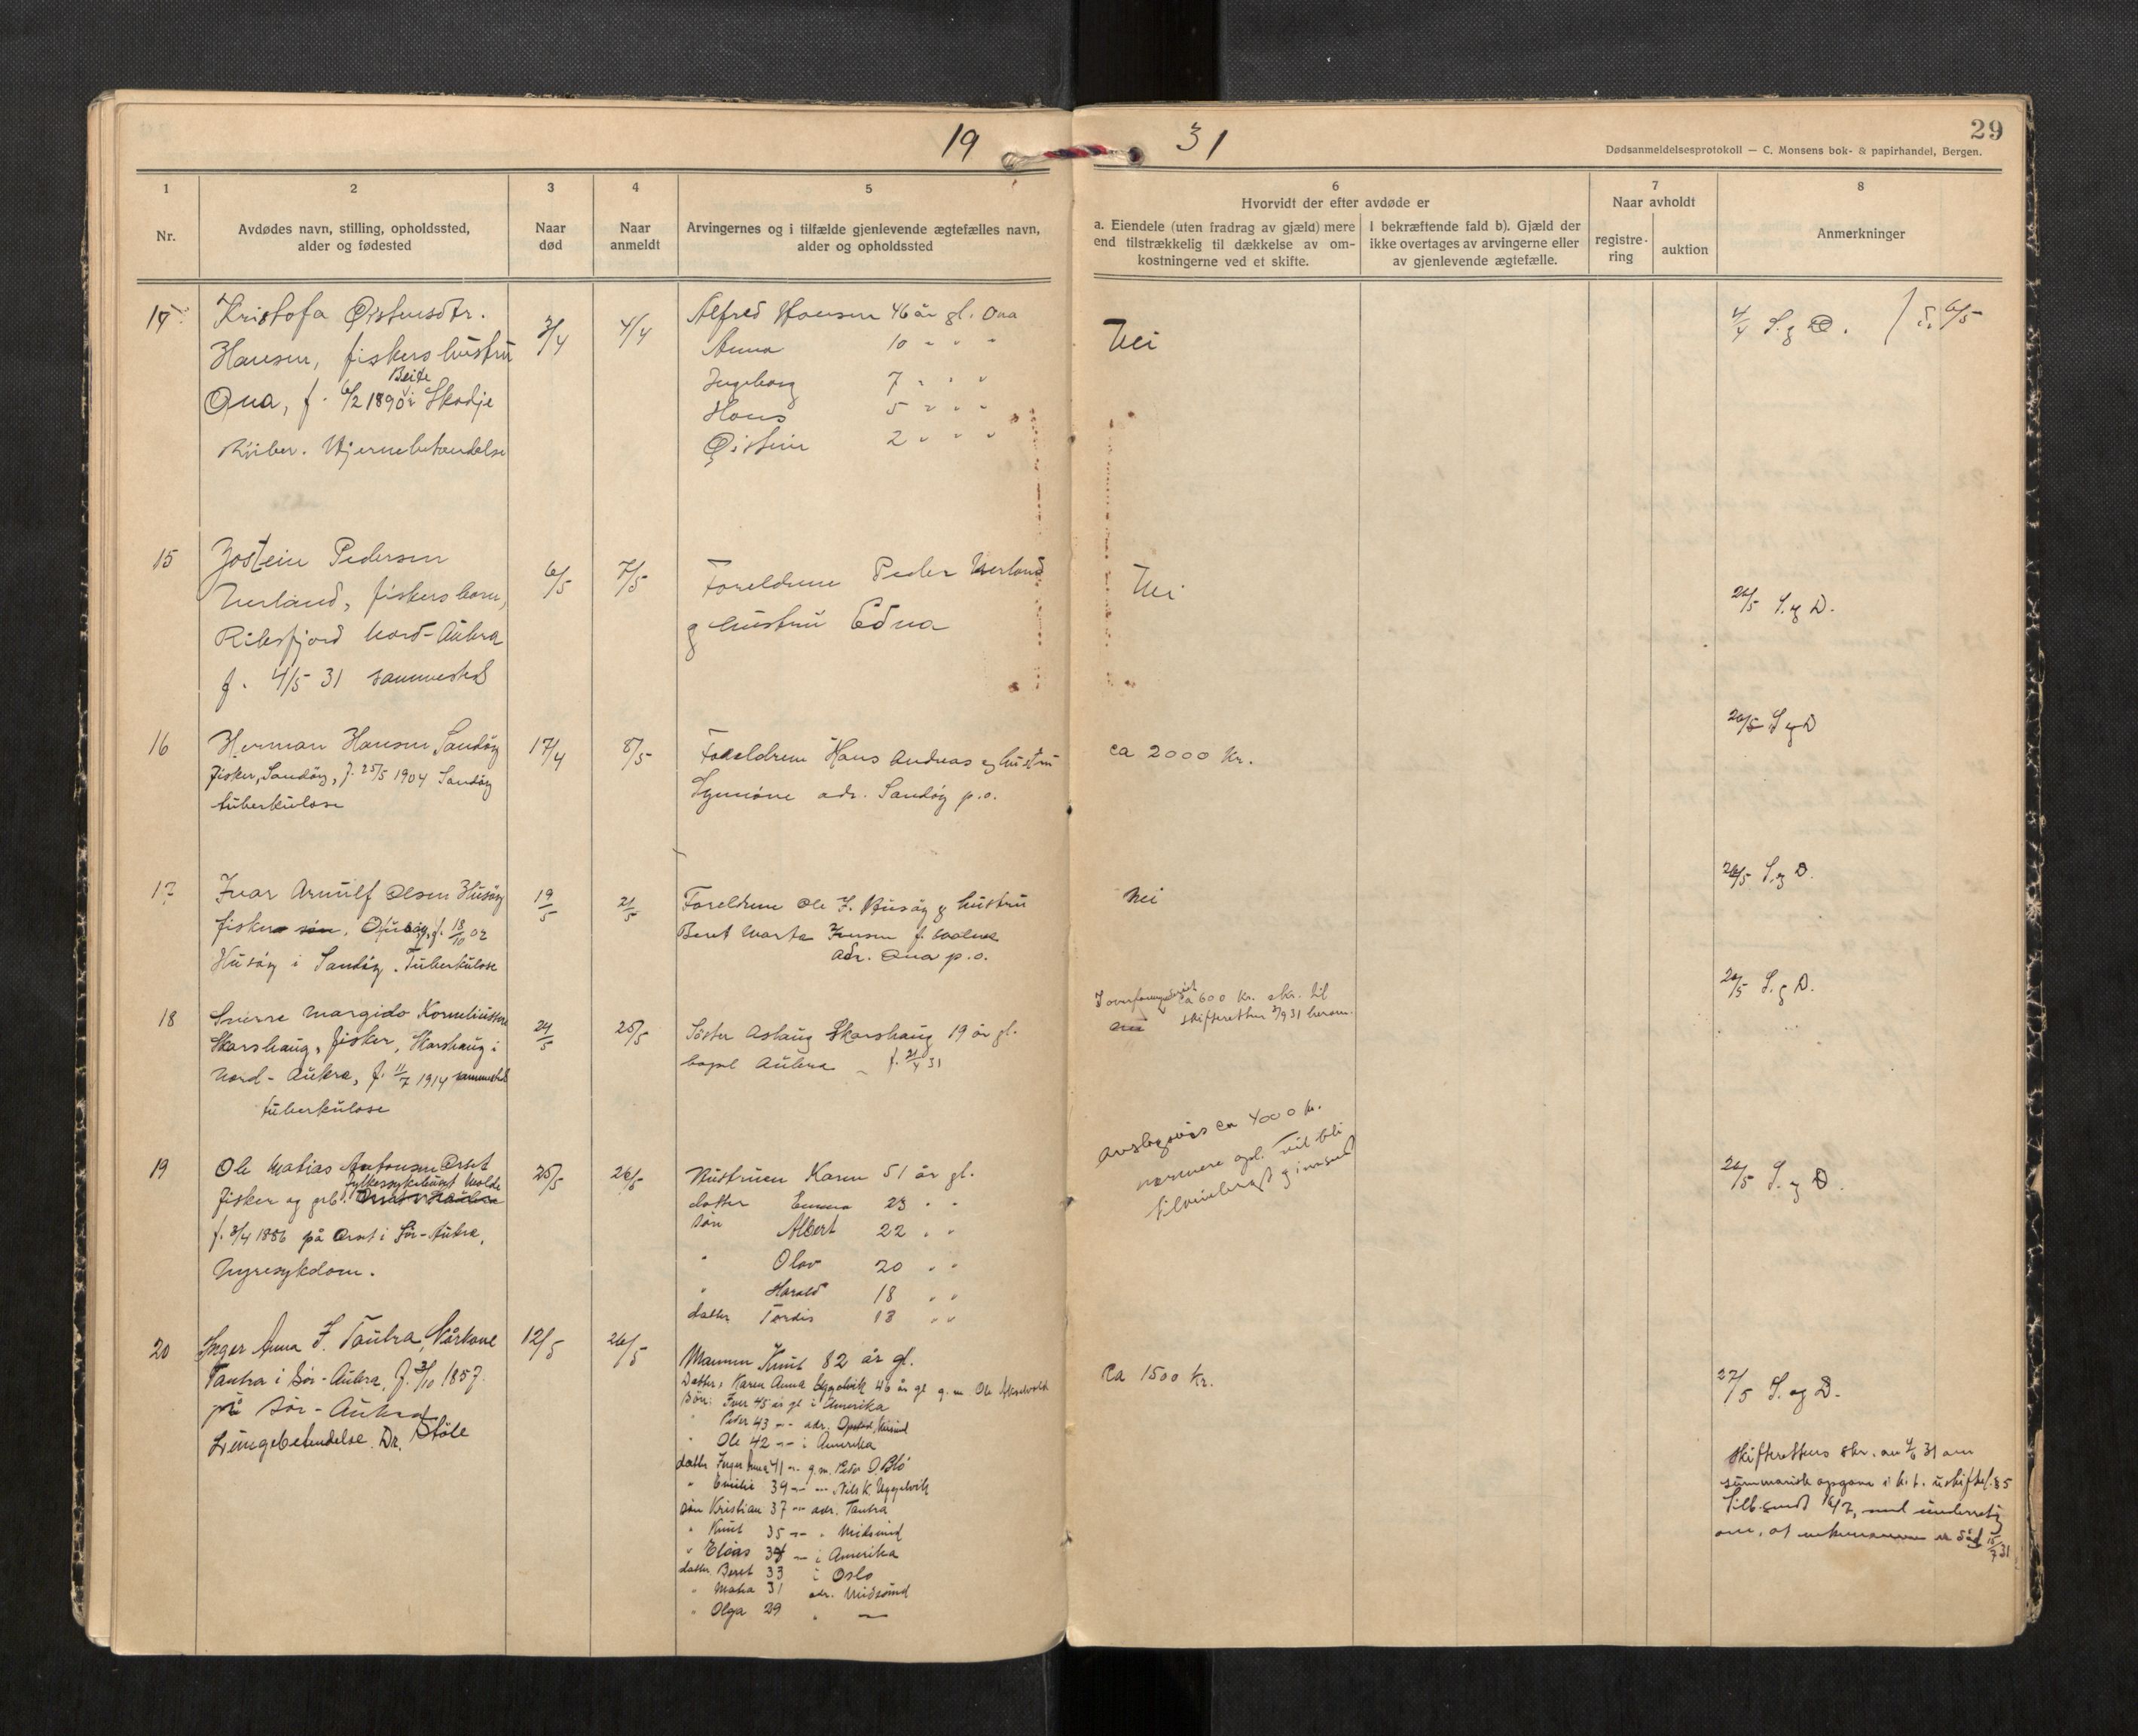 19
31
29
Dødsanmeldelsesprotokoll — C. Monsens bok- & papirhandel, Bergen.
1
Nr.
2
Avdødes navn, stilling, opholdssted,
alder og fødested
3
Naar
død
4
Naar
anmeldt
5
Arvingernes og i tilfælde gjenlevende ægtefælles navn,
alder og opholdssted
6
Hvorvidt der efter avdøde er
a. Eiendele (uten fradrag av gjæld) mere
end tilstrækkelig til dækkelse av om-
kostningerne ved et skifte.
I bekræftende fald b). Gjæld der
ikke overtages av arvingerne eller
av gjenlevende ægtefælle.
7
Naar avholdt
registre-
ring
auktion
8
Anmerkninger
Kristofa Øistensdtr.
Hansen, fiskers hustru
Beite
Ona, f. 6/2 1890 i Skodje
Hjernebetendelse
3/4
4/4
Alfred Hansen 46 år gl. Ona
Anna 10 " " "
Ingeborg 7 " " "
Hans 5 " " "
Øistein 2 " " "
Nei
4/4 S.g D.
6/5
15
Jostein Pedersen
Nerland, fiskers barn,
Nord-Aukra
f. 4/5 31 sammested
6/5
7/5
Foreldrene Peder Nerland
g hustru Edna
Nei
26/5 S.g D.
16
Herman Hansen Sandöy
Fisker, Sandöy, f. 25/5 1904 Sandöy
tuberkulose
17/4
8/5
Foreldrene Hans Andreas g hustru
adr. Sandöy p.o.
ca 2000 Kr.
26/5 S g D
17
Ivar Arnulf Olsen Husöy
fisker søn, Husöy, f. 18/10 02
Husöy i Sandöy. Tuberkulose
19/5
21/5
Foreldrene Ole J. Husöy g hustru
Beret Marta
adr. Ona p.o.
Nei
26/5 S.g D.
18
Sverre Margido Korneliussen
Skarshaug, fisker, Skarshaug i
Nord-Aukra, f. 11/7 1914 sammested
tuberkulose
24/5
25/5
Söster Aslaug Skarshaug 19 år gl.
bopel Aukra f. 21/4 31
ca 600 Kr. skr. til
skifteretten 2/9 31 herom.
nei
26/5 S.g D.
19
Ole Matias Antonsen Orset
fylkessykehuset Molde
fisker og grb.
f. 3/4 1886 på Orset i Sör-Aukra,
Nyresykdom.
25/5
26/5
Hustruen Karen 51 år gl.
datter Emma 23 " "
sön Albert 22 " "
" Olav 20 " "
" Harald 18 " "
datter Tordis 13 " "
ca 4000 kr.
nermere opl. vil bli
26/5 S. g D.
20
Inger Anna I. Tautra, kårkone
Tautra i Sör-Aukra, f. 3/10 1857
på Sör-Aukra
Lungebetendelse. Dr. Stöle
12/5
26/5
Mannen Knut 82 år gl.
Datter: Karen Anna Uggelvik 46 år gl g.m. Ole
Sön: Iver 45 år gl i Amerika
" Peder 43 -"- adr.
" Ole 42 -"- i Amerika
datter Inger Anna 41 -"- g.m. Peder O. Blö
" Emilie 39 -"- -"- Nils K. Uggelvik
sön Kristian 37 -"- adr. Tautra
" Knut 35 -"- " Midsund
" Elias 34 -"- i Amerika
datter Beret 33 i Oslo
" Marta 31 adr. Midsund
" Olga 29 " —
Ca 1500 Kr.
27/5 S. og D.
skifterettens skr. av 4/6 31 om
summarisk opgave i h.t. uskiftel. § 5
tilb.sendt 16/7, med underretn.
om, at enkemannen er død 15/7 31